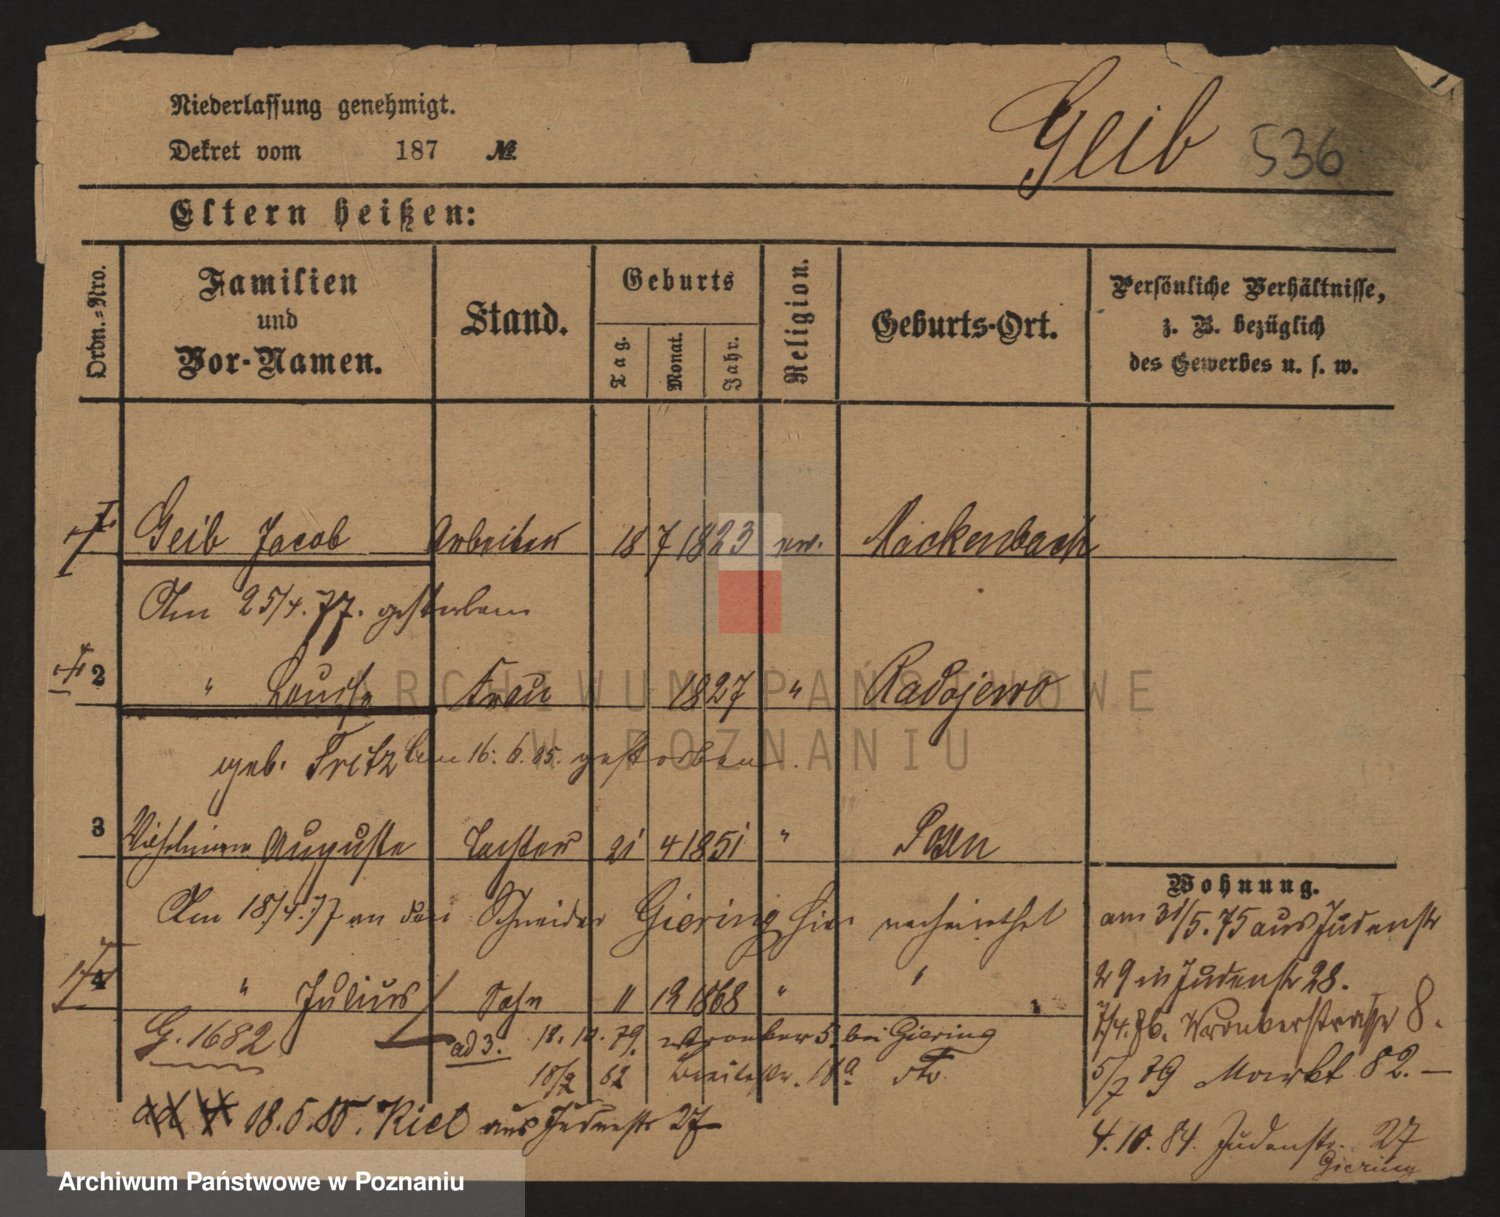 Niederlassung genehmigt.
Dekret vom 187 №
Geib 536
Eltern heißen:
Ordn.-Nro.
Familien und Vor-Namen.
Stand.
Geburts
Tag.
Monat.
Jahr.
Religion.
Geburts-Ort.
Persönliche Verhältnisse,
z. B. bezüglich
des Gewerbes u. s. w.
Geib Jacob Arbeiter 18 7 1823 ev. Mackenbach
Am 25/4.77. gestorben
2 " Louise Frau 1827 " Radojewo
geb. Fritz am 16. 6. 85. gestorben.
3 Wilhelmine Auguste Tochter 21 4 1851 " Posen
Am 18/4.77 an den Schneider Giering hier verheirathet
4 " Julius Sohn 11 12 1868 " "
G. 1682
ad 3. 18. 10. 79. Wronker 5. bei Giering
Breitestr. 18a
ad 4 18.5.85. Kiel aus Judenstr 27
Wohnung.
am 31/5.75 aus Judenstr
29 in Judenstr 28.
7/4.76. Wronkerstrasse 8.
5/7 79 Markt 82. —
4.10.84. Judenstr. 27
Giering
ARCHIWUM PAŃSTWOWE
W POZNANIU
Archiwum Państwowe w Poznaniu